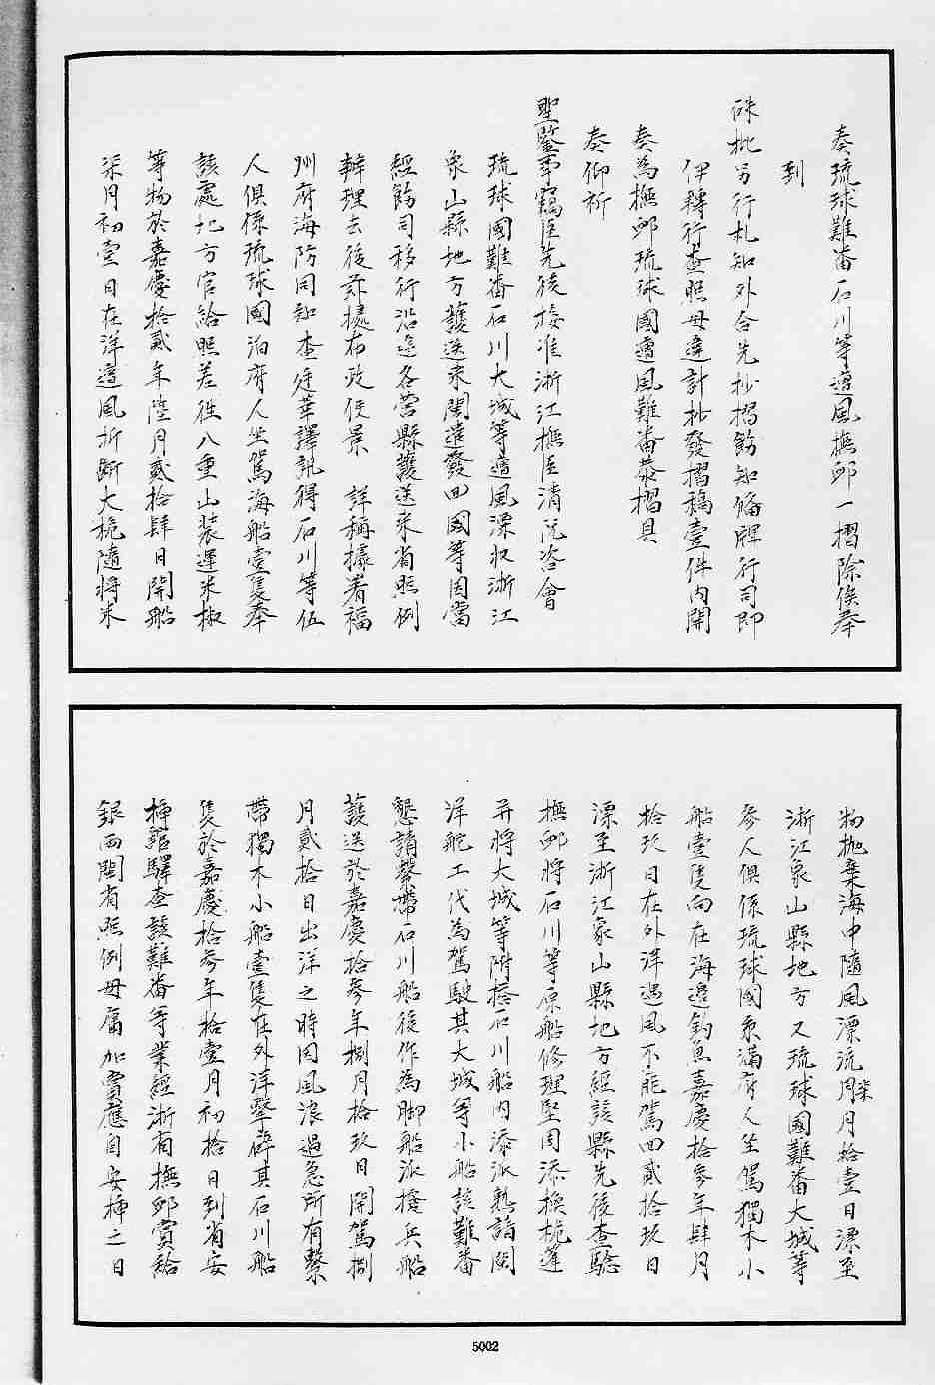 奏琉球難番石川等遭風撫卹一摺除俟奉
到
硃批另行札知外合先抄摺飭知備牌行司即
伊轉行查照毋違計抄發摺稿壹件內開
奏為撫卹琉球國遭風難番恭摺具
奏仰祈
聖鑒事竊臣先後接准浙江撫臣清阮咨會
琉球國難番石川大城等遭風漂收浙江
象山縣地方護送來閩遣發回國等因當
經飭司移行沿途各營縣護送來省照例
辦理去後茲據布政使景 詳稱據署福
州府海防同知查廷華譯訊得石川等伍
人俱係琉球國泊府人坐駕海船壹隻奉
該處地方官給照差往八重山裝運米椒
等物於嘉慶拾貳年陸月貳拾肆日開船
柒月初壹日在洋遭風折斷大桅隨將米
物拋棄海中隨風漂流柒月拾壹日漂至
浙江象山縣地方又琉球國難番大城等
參人俱係琉球國系滿府人坐駕獨木小
船壹隻向在海邊釣魚嘉慶拾參年肆月
拾玖日在外洋遇風不能駕回貳拾玖日
漂至浙江象山縣地方經該縣先後查驗
撫卹將石川等原船修理堅固添換桅篷
并將大城等附搭石川船內添派熟諳閩
洋舵工代為駕駛其大城等小船該難番
懇請繫帶石川船後作為脚船派撥兵船
護送於嘉慶拾參年捌月拾玖日開駕捌
月貳拾日出洋之時因風浪過急所有繫
帶獨木小船壹隻在外洋擊碎其石川船
隻於嘉慶拾參年拾壹月初拾日到省安
插館驛查該難番等業經浙省撫卹賞給
銀兩閩省照例毋庸加賞應自安插之日
5002